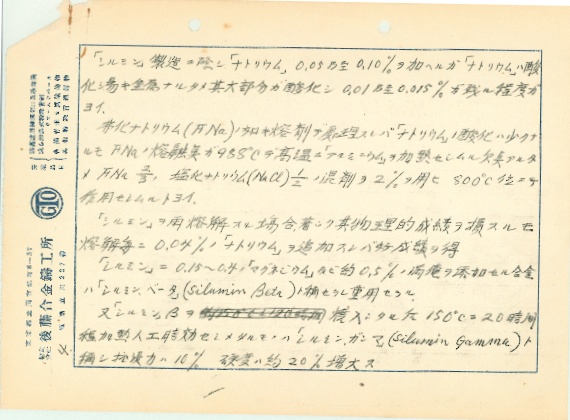 「シルミン」製造ニ際シ「ナトリウム」0.05乃至0.10%ヲ加ヘルガ「ナトリウム」ハ酸
化シ易キ金属ナルタメ其大部分ガ酸化シ 0.01乃至0.015%ガ残ル程度ガ
ヨイ。
弗化ナトリウム(FNa)ノ如キ熔剤デ処理スレバ「ナトリウム」酸化ハ少クナ
ルモ FNaノ熔融点ガ988°Cデ高温ニ「アルミニウム」ヲ加熱セシムル欠点アルタ
メ FNa 2/3, 塩化ナトリウム(NaCl) 1/2ノ混剤ヲ2%ヲ用ヒ 800°C位ニテ
作用セシムルトヨイ。
「シルミン」ヲ再熔解スル場合著シク其物理的成績ヲ損スルモ
熔解毎ニ 0.04%ノ「ナトリウム」ヲ追加スレバ好成績ヲ得
「シルミン」ニ 0.15〜0.4ノ「マグネシウム」及ビ約0.5%ノ満俺ヲ添加セル合金
ハ「シルミン、ベータ」(Silumin Beta)ト称セラレ重用セラル
又「シルミン」Bヲ 焼入シタル后 150°C=20時間
程加熱人工時効セシメタルモノハ「シルミン、ガンマ」(Silumin Gamma)ト
称シ抗張力ハ10% 硬度ハ約20%増大ス
GIO
後藤合金鋳工所